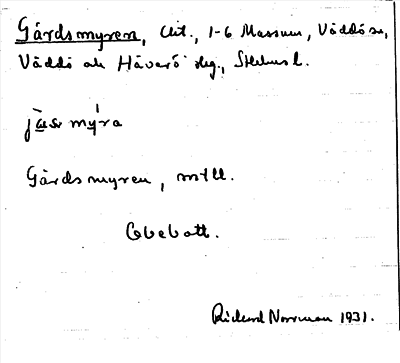 Gårdsmyren, 1-6 Massum, Väddö sn,
Väddö och Häverö slg., Sthlms l.
myra
Gårdsmyren, mtll.
Obebott.
Richard Norrman 1931.